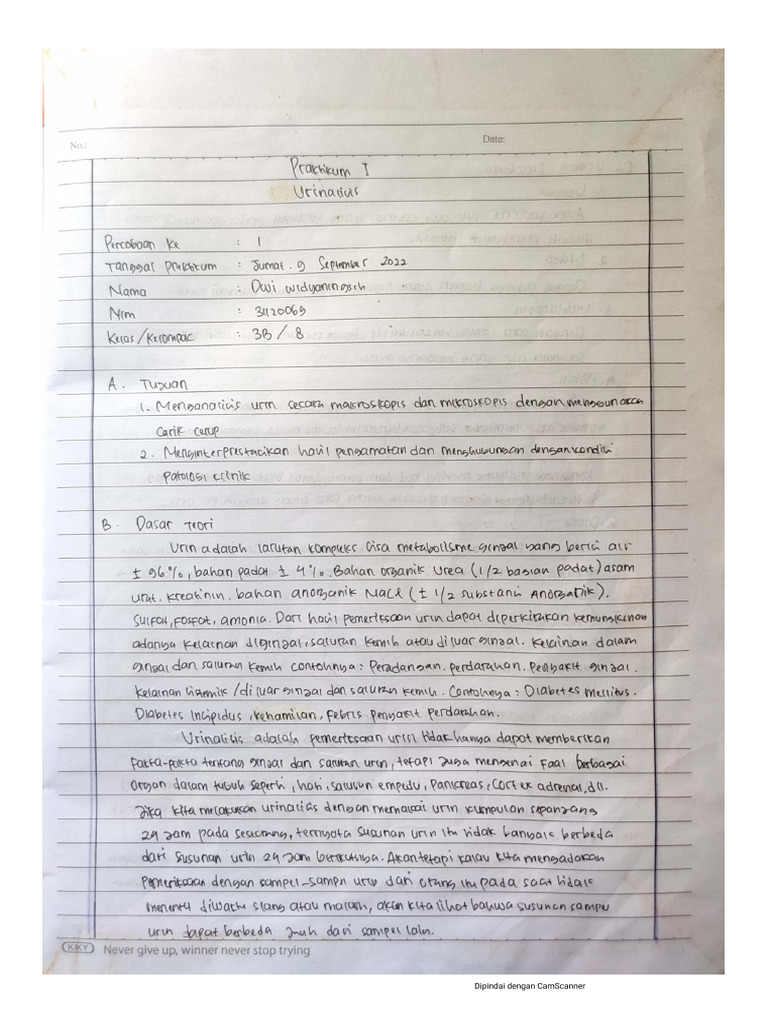 No.:
Date:
Praktikum I
Urinalisis
Percobaan Ke : 1
Tanggal Praktikum : Jumat. 9 September 2022
Nama : Dwi Widyaningsih
Nim : 31120069
Kelas/Kelompok : 3B / 8
A. Tujuan
1. Menganalisis urin secara makroskopis dan mikroskopis dengan menggunakan
Carik celup
2. Menginterprestasikan hasil pengamatan dan menghubungan dengan kondisi
Patologi klinik
B. Dasar Teori
Urin adalah larutan kompleks sisa metabolisme ginjal yang berisi air
± 96%, bahan padat ± 4%. Bahan organik Urea (1/2 bagian padat) asam
urat. kreatinin. bahan anorganik NaCl (± 1/2 substansi Anorganik).
Sulfat, fosfat, amonia. Dari hasil pemeriksaan urin dapat diperkirakan kemungkinan
adanya kelainan diginjal, saluran kemih atau diluar ginjal. Kelainan dalam
ginjal dan saluran kemih contohnya : Peradangan. perdarahan. Penyakit ginjal.
Kelainan sistemik / diluar ginjal dan saluran kemih. Contohnya : Diabetes Mellitus.
Diabetes Insipidus, kehamilan, Febris penyakit perdarahan.
Urinalisis adalah pemeriksaan urin tidak hanya dapat memberikan
fakta-fakta tentang ginjal dan saluran urin, tetapi juga mengenai Faal berbagai
organ dalam tubuh seperti, hati, saluran empedu, Pancreas, Cortex adrenal, dll.
Jika kita melakukan urinalisis dengan memakai urin kumpulan sepanjang
24 Jam pada seseorang, ternyata susunan urin itu tidak banyak berbeda
dari susunan urin 24 Jam berikutnya. Akan tetapi kalau kita mengadakan
Pemeriksaan dengan sampel-sampel urin dari orang itu pada saat tidak
menentu diwaktu siang atau malam, akan kita lihat bahwa susunan sampel
urin dapat berbeda Jauh dari sampel lain.
KIKY Never give up, winner never stop trying
Dipindai dengan CamScanner